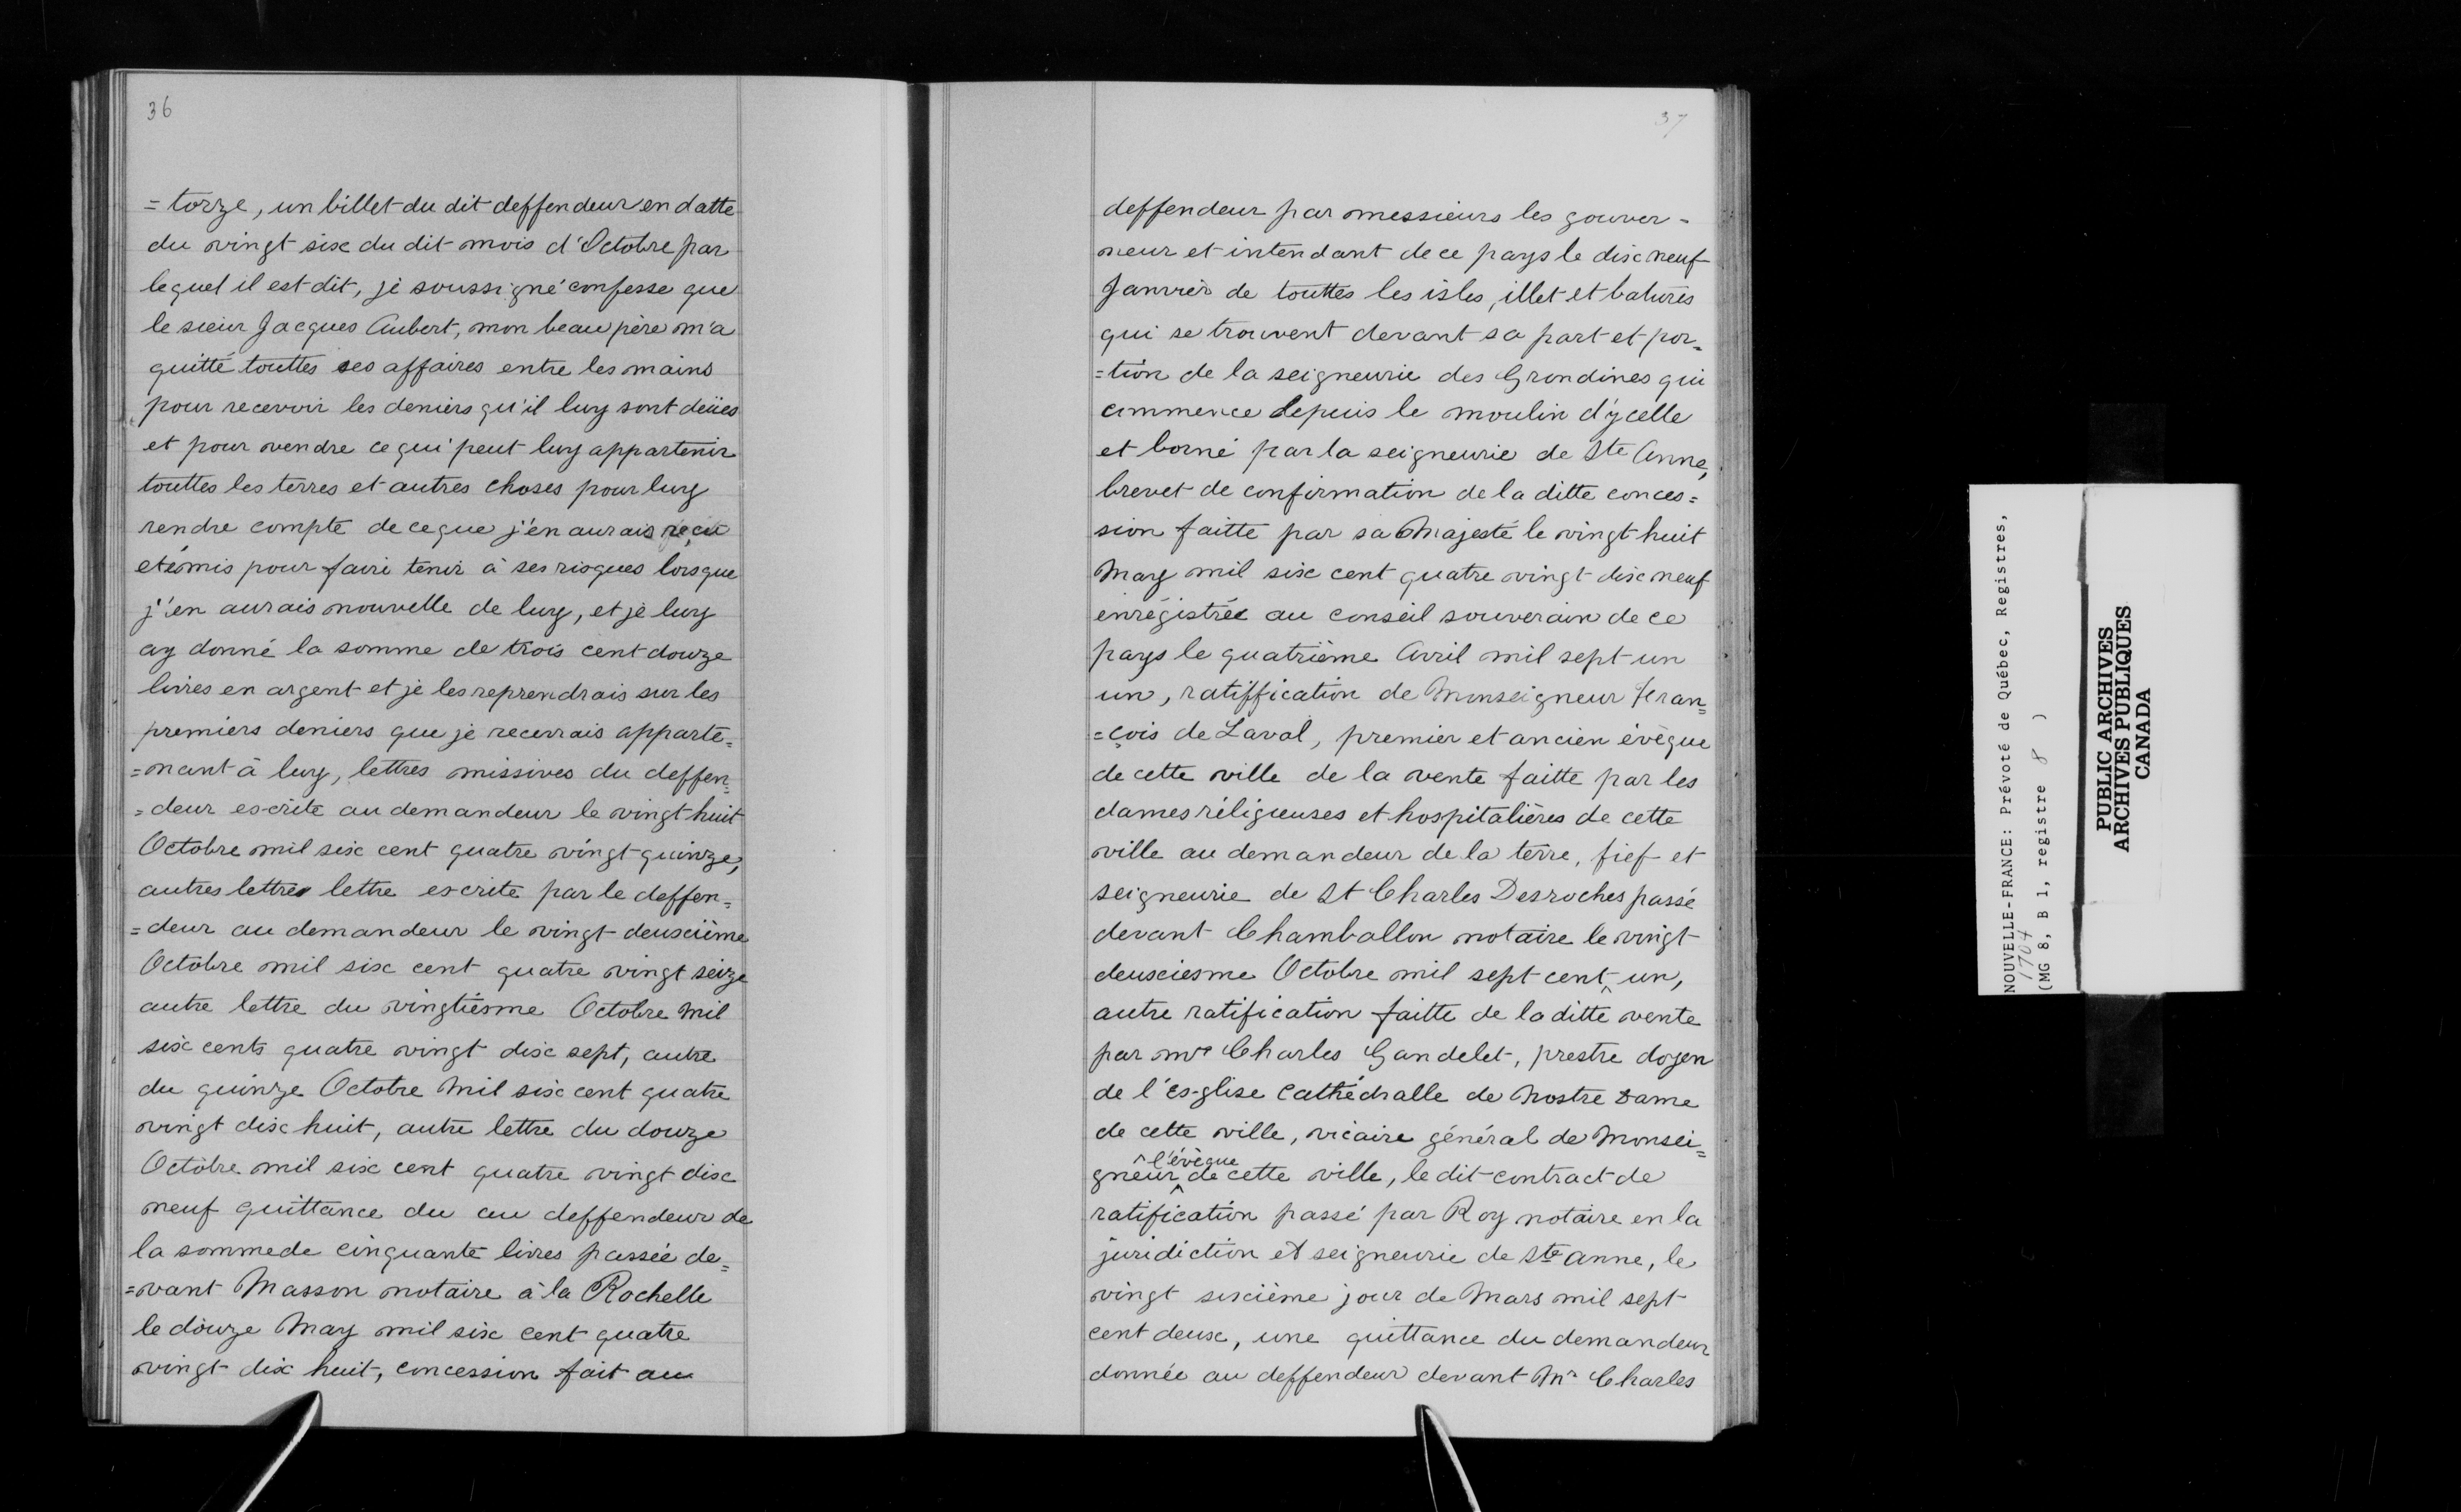 36
=torze, un billet du dit deffendeur en datte
du vingt six du dit mois d'Octobre par
lequel il est dit, je soussigné confesse que
le sieur Jacques Aubert, mon beau père m'a
quitté touttes ses affaires entre les mains
pour recevoir les deniers qu'il luy sont deües
et pour vendre ce qui peut luy appartenir
touttes les terres et autres choses pour luy
rendre compte de ce que j'en aurais reçu
et émis pour faire tenir à ses risques lorsque
j'en aurais nouvelle de luy, et je luy
ay donné la somme de trois cent douze
livres en argent et je les reprendrais sur les
premiers deniers que je recevrais apparte=
=nant à luy, lettres missives du deffen=
=deur escrite au demandeur le vingt huit
Octobre mil six cent quatre vingt quinze,
autres lettres lettre escrite par le deffen=
=deur au demandeur le vingt deuxième
Octobre mil six cent quatre vingt seize
autre lettre du vingtiesme Octobre mil
six cents quatre vingt dix sept, autre
du quinze Octobre mil six cent quatre
vingt dix huit, autre lettre du douze
Octobre mil six cent quatre vingt dix
neuf quittance du au deffendeur de
la somme de cinquante livres passée de=
=vant Masson notaire à la Rochelle
le douze May mil six cent quatre
vingt dix huit, concession fait au
37
deffendeur par messieurs les gouver=
neur et intendant de ce pays le dix neuf
Janvier de touttes les isles, illet et batures
qui se trouvent devant sa part et por=
=tion de la seigneurie des Grondines qui
commence depuis le moulin d'ycelle
et borné par la seigneurie de Ste Anne,
brevet de confirmation de la ditte conces=
sion faitte par sa Majesté le vingt huit
May mil six cent quatre vingt dix neuf
enrégistrée au conseil souverain de ce
pays le quatrième Avril mil sept un
un, ratiffication de Monseigneur Fran=
=çois de Laval, premier et ancien évêque
de cette ville de la vente faitte par les
dames réligieuses et hospitalières de cette
ville au demandeur de la terre, fief et
seigneurie de St Charles Desroches passé
devant Chamballon notaire le vingt
deuxiesme Octobre mil sept cent ^ un,
autre ratification faitte de la ditte vente
par mre Charles Gandelet, prestre doyen
de l'es-glise Cathédralle de Nostre Dame
de cette ville, vicaire général de Monsei=
gneur ^ l'évêque de cette ville, le dit contract de
ratification passé par Roy notaire en la
juridiction et seigneurie de Ste Anne, le
vingt sixième jour de Mars mil sept
cent deux, une quittance du demandeur
donnée au deffendeur devant Mr Charles
NOUVELLE-FRANCE: Prévoté de Québec, Registres,
1704
(MG 8, B 1, registre 8 )
PUBLIC ARCHIVES
ARCHIVES PUBLIQUES
CANADA